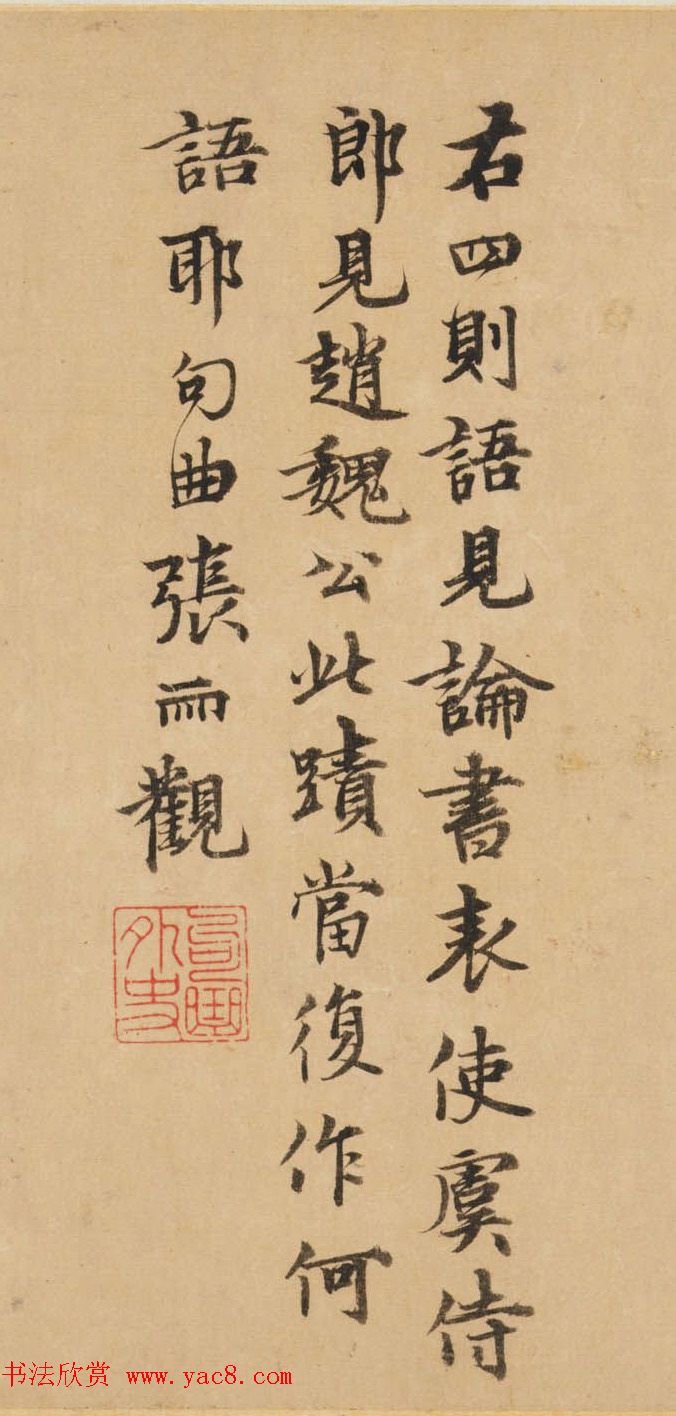 右四則語見論書表使虞侍
郎見趙魏公此蹟當復作何
語耶句曲張雨觀
句曲外史
书法欣赏 www.yac8.com